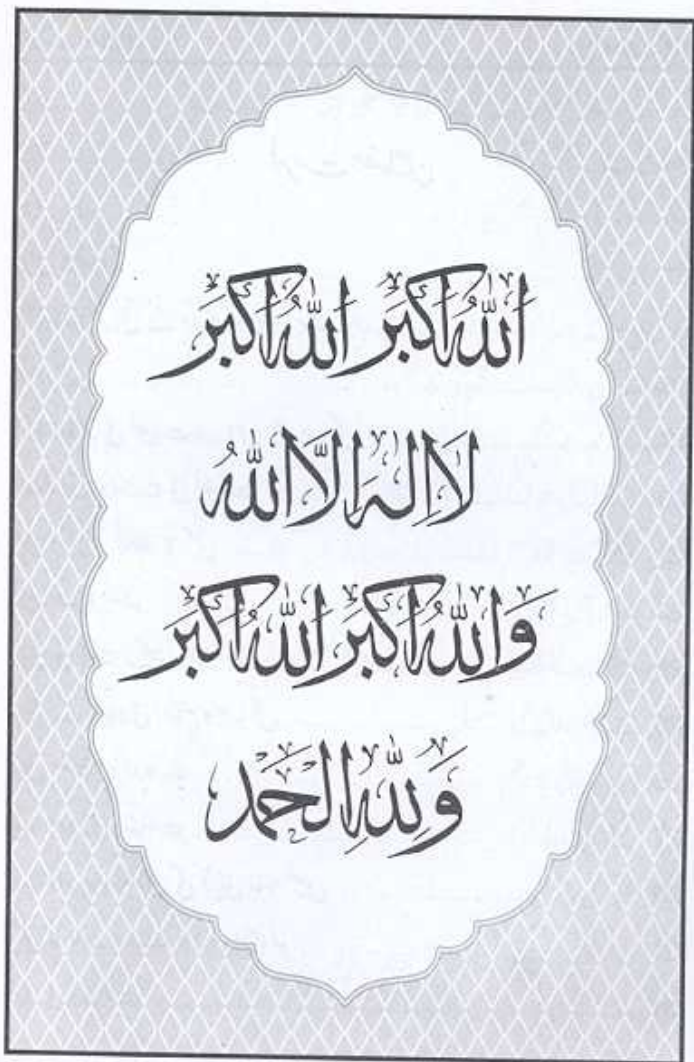 اَللّٰهُ اَكْبَرُ اَللّٰهُ اَكْبَرُ
لَا اِلٰهَ اِلَّا اللّٰهُ
وَاللّٰهُ اَكْبَرُ اَللّٰهُ اَكْبَرُ
وَلِلّٰهِ الْحَمْدُ